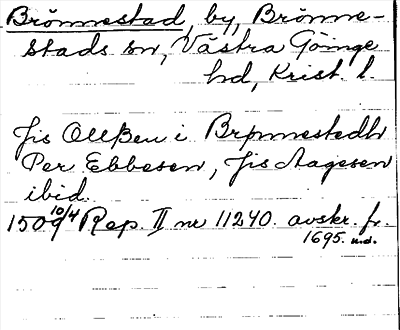 Brönnestad, by, Brönne-
stads sn, Västra Göinge
hd, Krist. l.
Jis Ollßen i Brpnnestedh
Per Ebbesen, Jis Aagesen
ibid.
1509 10/4 Rep. II nr 11240. avskr. fr.
1695. u.d.